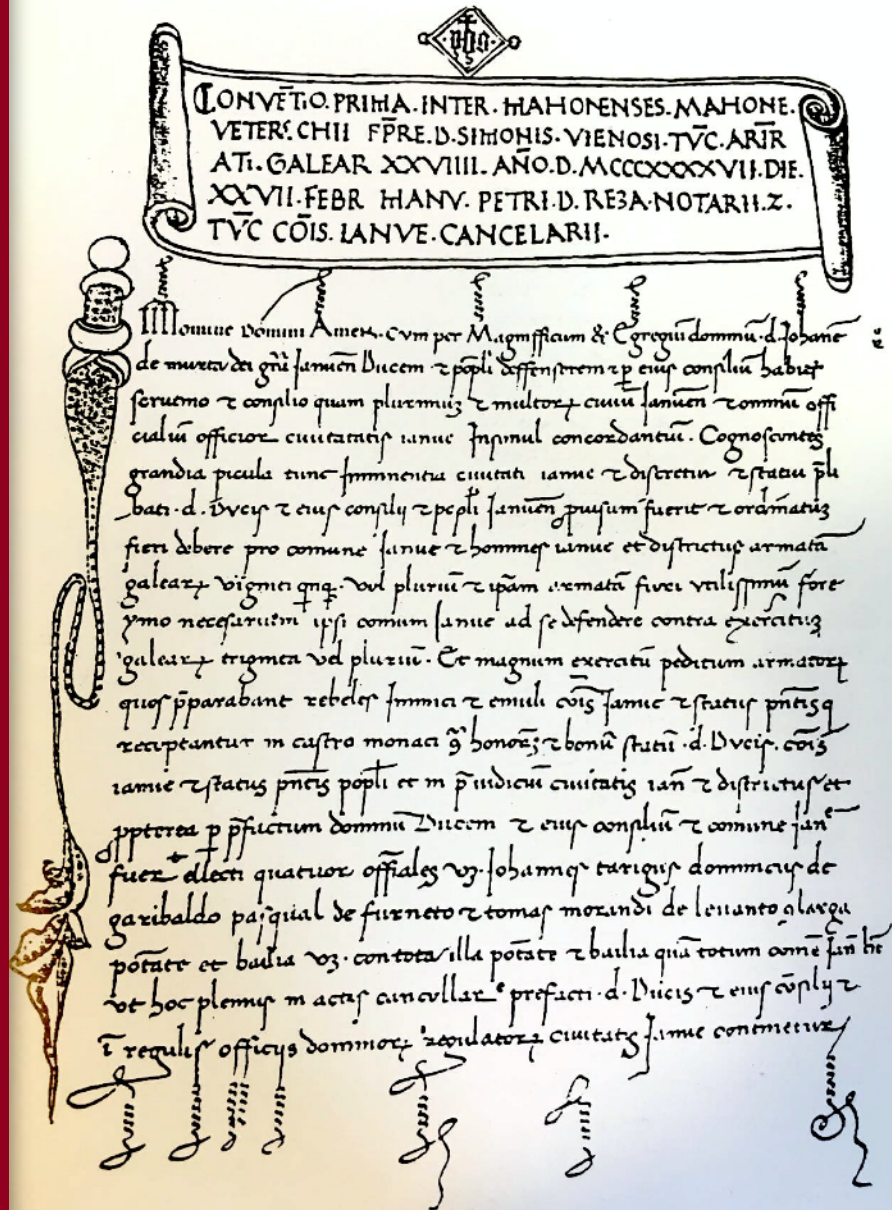 yhs
CONVĒTIO. PRIMA. INTER. MAHONENSES. MAHONE.
VETERS. CHII FP̄RE. D. SIMONIS. VIENOSI. TV̄C. ARM̄R
ATI. GALEAR XXVIIII. AÑO. D. MCCCXXXXVII. DIE.
XXVII. FEBR MANV. PETRI. D. REZA. NOTARII. Z.
TV̄C CŌIS. IANVE. CANCELARII.
Domini Amen. Cvm per Magnifficum & Egregiū dommū. d. Johanē
de murta dei gr̄a Januen̄ Ducem et pop̄li deffensorem et p̄ eius consiliū habito
et consilio quam plurimuz et multoꝝ ciuiū Januen̄ et omniū offi
cialiū officior ciuitatis ianue Insimul concordantiū. Cognoscentes
grandia picula tunc Imminentia ciuitati ianue et et statui p̄li
bati. d. Ducis et eius consilij et pop̄li Januen̄ prouisum fuerit et ordinatuz
fieri debere pro comune Janue et homines ianue et districtus armatā
galeaꝝ viginti qnq. vel pluriū et ip̄am armatā fieri vtilissimū fore
ymo necesarium ipsi comuni Janue ad se defendere contra exercituz
galeaꝝ triginta vel pluriū. Et magnum exercitū peditum armatoꝝ
quos p̄parabant rebeles Inimici et emuli cōis Janue et status pn̄tis q
receptantur in castro monaci ꝯ honorez et bonū statū. d. Ducis. cōis
ianue et status pn̄tis popl̄i et in p̄iudiciū ciuitatis ian̄ et districtus et
ppterea p p̄factum dommū Ducem et eius consiliū et comune Jan̄e
fuer̄t ellecti quatuor offiales vz. Johannes tarigus dominicus de
garibaldo pasqual de furneto et tomas morandi de leuanto ꝯ larga
potāte et bailia vz. con tota illa potāte et bailia quā totum comē Jan̄ het
vt hoc plenius in actis cancellar̄e prefacti. d. Ducis et eius cōsilij et
ī regulis officijs dominoꝝ regulatoꝝ ciuitatis Janue continetur